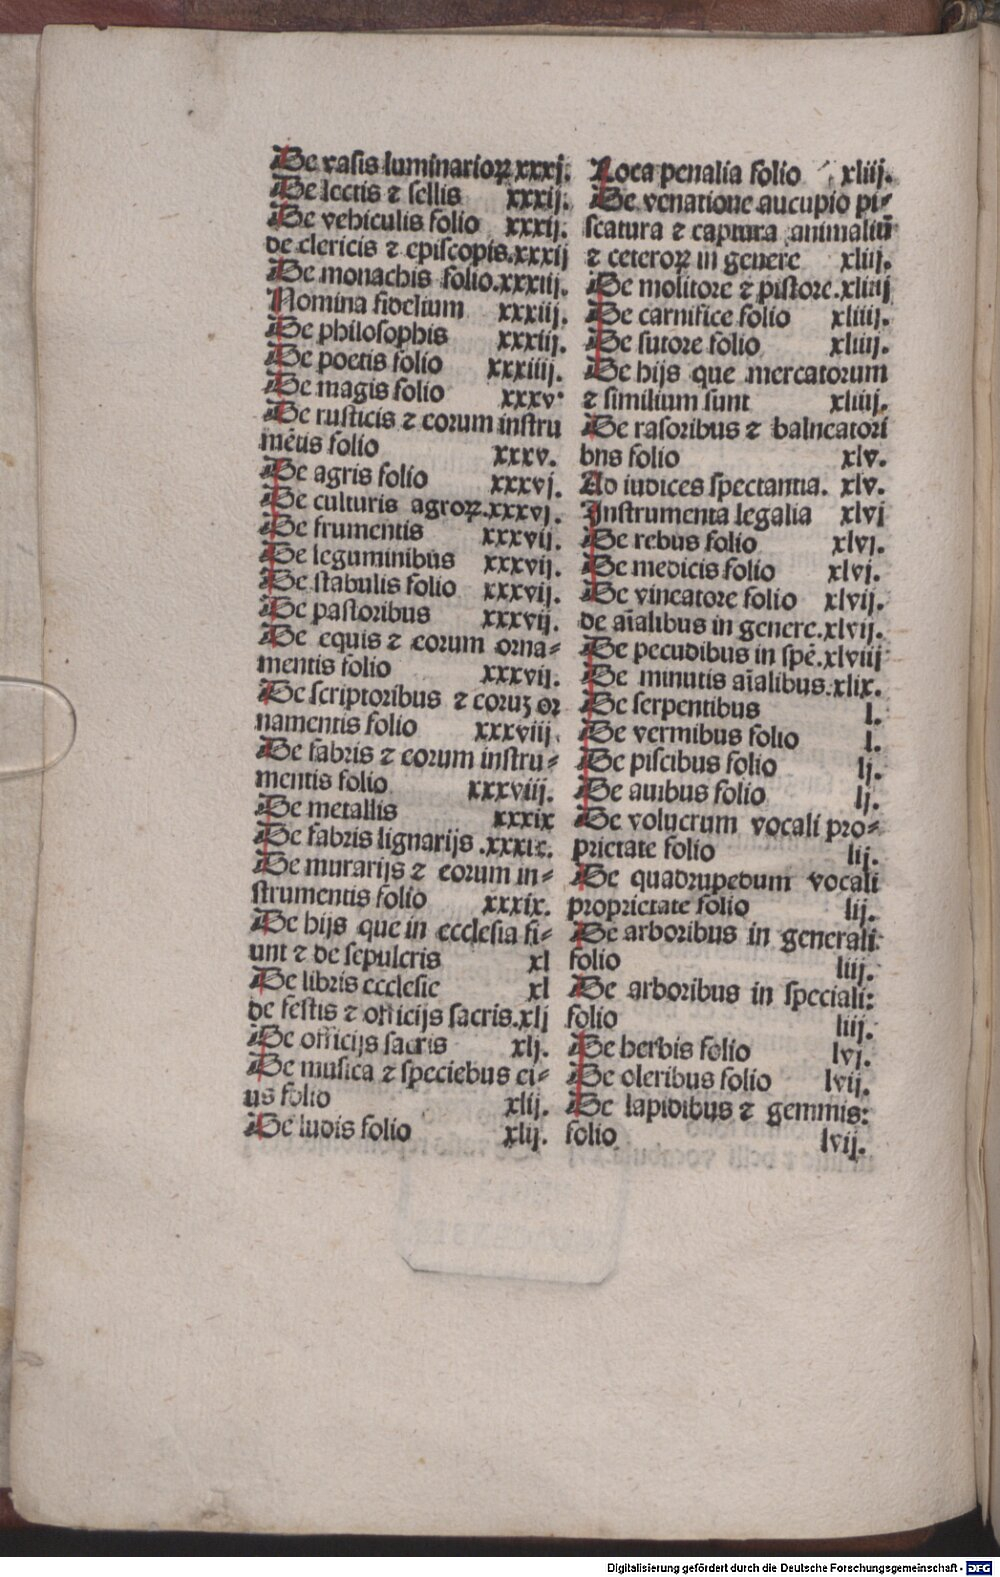 De vasis luminarioꝝ xxxj.
De lectis ⁊ sellis xxxij.
De vehiculis folio xxxij.
de clericis ⁊ episcopis.xxxij
De monachis folio.xxxiij.
Nomina fidelium xxxiij.
De philosophis xxxiij.
De poetis folio xxxiiij.
De magis folio xxxv.
De rusticis ⁊ eorum instru
mētis folio xxxv.
De agris folio xxxvj.
De culturis agroꝝ.xxxvj.
De frumentis xxxvij.
De leguminibus xxxvij.
De stabulis folio xxxvij.
De pastoribus xxxvij.
De equis ⁊ eorum orna-
mentis folio xxxvij.
De scriptoribus ⁊ eoruꝫ or
namentis folio xxxviij.
De fabris ⁊ eorum instru-
mentis folio xxxviij.
De metallis xxxix
De fabris lignarijs .xxxix.
De murarijs ⁊ eorum in-
strumentis folio xxxix.
De hijs que in ecclesia fi-
unt ⁊ de sepulcris xl
De libris ecclesie xl
de festis ⁊ officijs sacris.xlj
De officijs sacris xlj.
De musica ⁊ speciebus ei-
us folio xlij.
De ludis folio xlij.
Loca penalia folio xliij.
De venatione aucupio pi-
scatura ⁊ captura animaliū
⁊ ceteroꝝ in genere xliij.
De molitore ⁊ pistore.xliiij
De carnifice folio xliiij.
De sutore folio xliiij.
De hijs que mercatorum
⁊ similium sunt xliiij.
De rasoribus ⁊ balneatori
bns folio xlv.
Ad iudices spectantia. xlv.
Instrumenta legalia xlvj
De rebus folio xlvj.
De medicis folio xlvj.
De vineatore folio xlvij.
de aīalibus in genere.xlvij.
De pecudibus in spē.xlviij
De minutis aīalibus.xlix.
De serpentibus l.
De vermibus folio l.
De piscibus folio lj.
De auibus folio lj.
De volucrum vocali pro-
prietate folio lij.
De quadrupedum vocali
proprietate folio lij.
De arboribus in generali
folio liij.
De arboribus in speciali:
folio liij.
De herbis folio lvj.
De oleribus folio lvij.
De lapidibus ⁊ gemmis:
folio lvij.
Digitalisierung gefördert durch die Deutsche Forschungsgemeinschaft - DFG